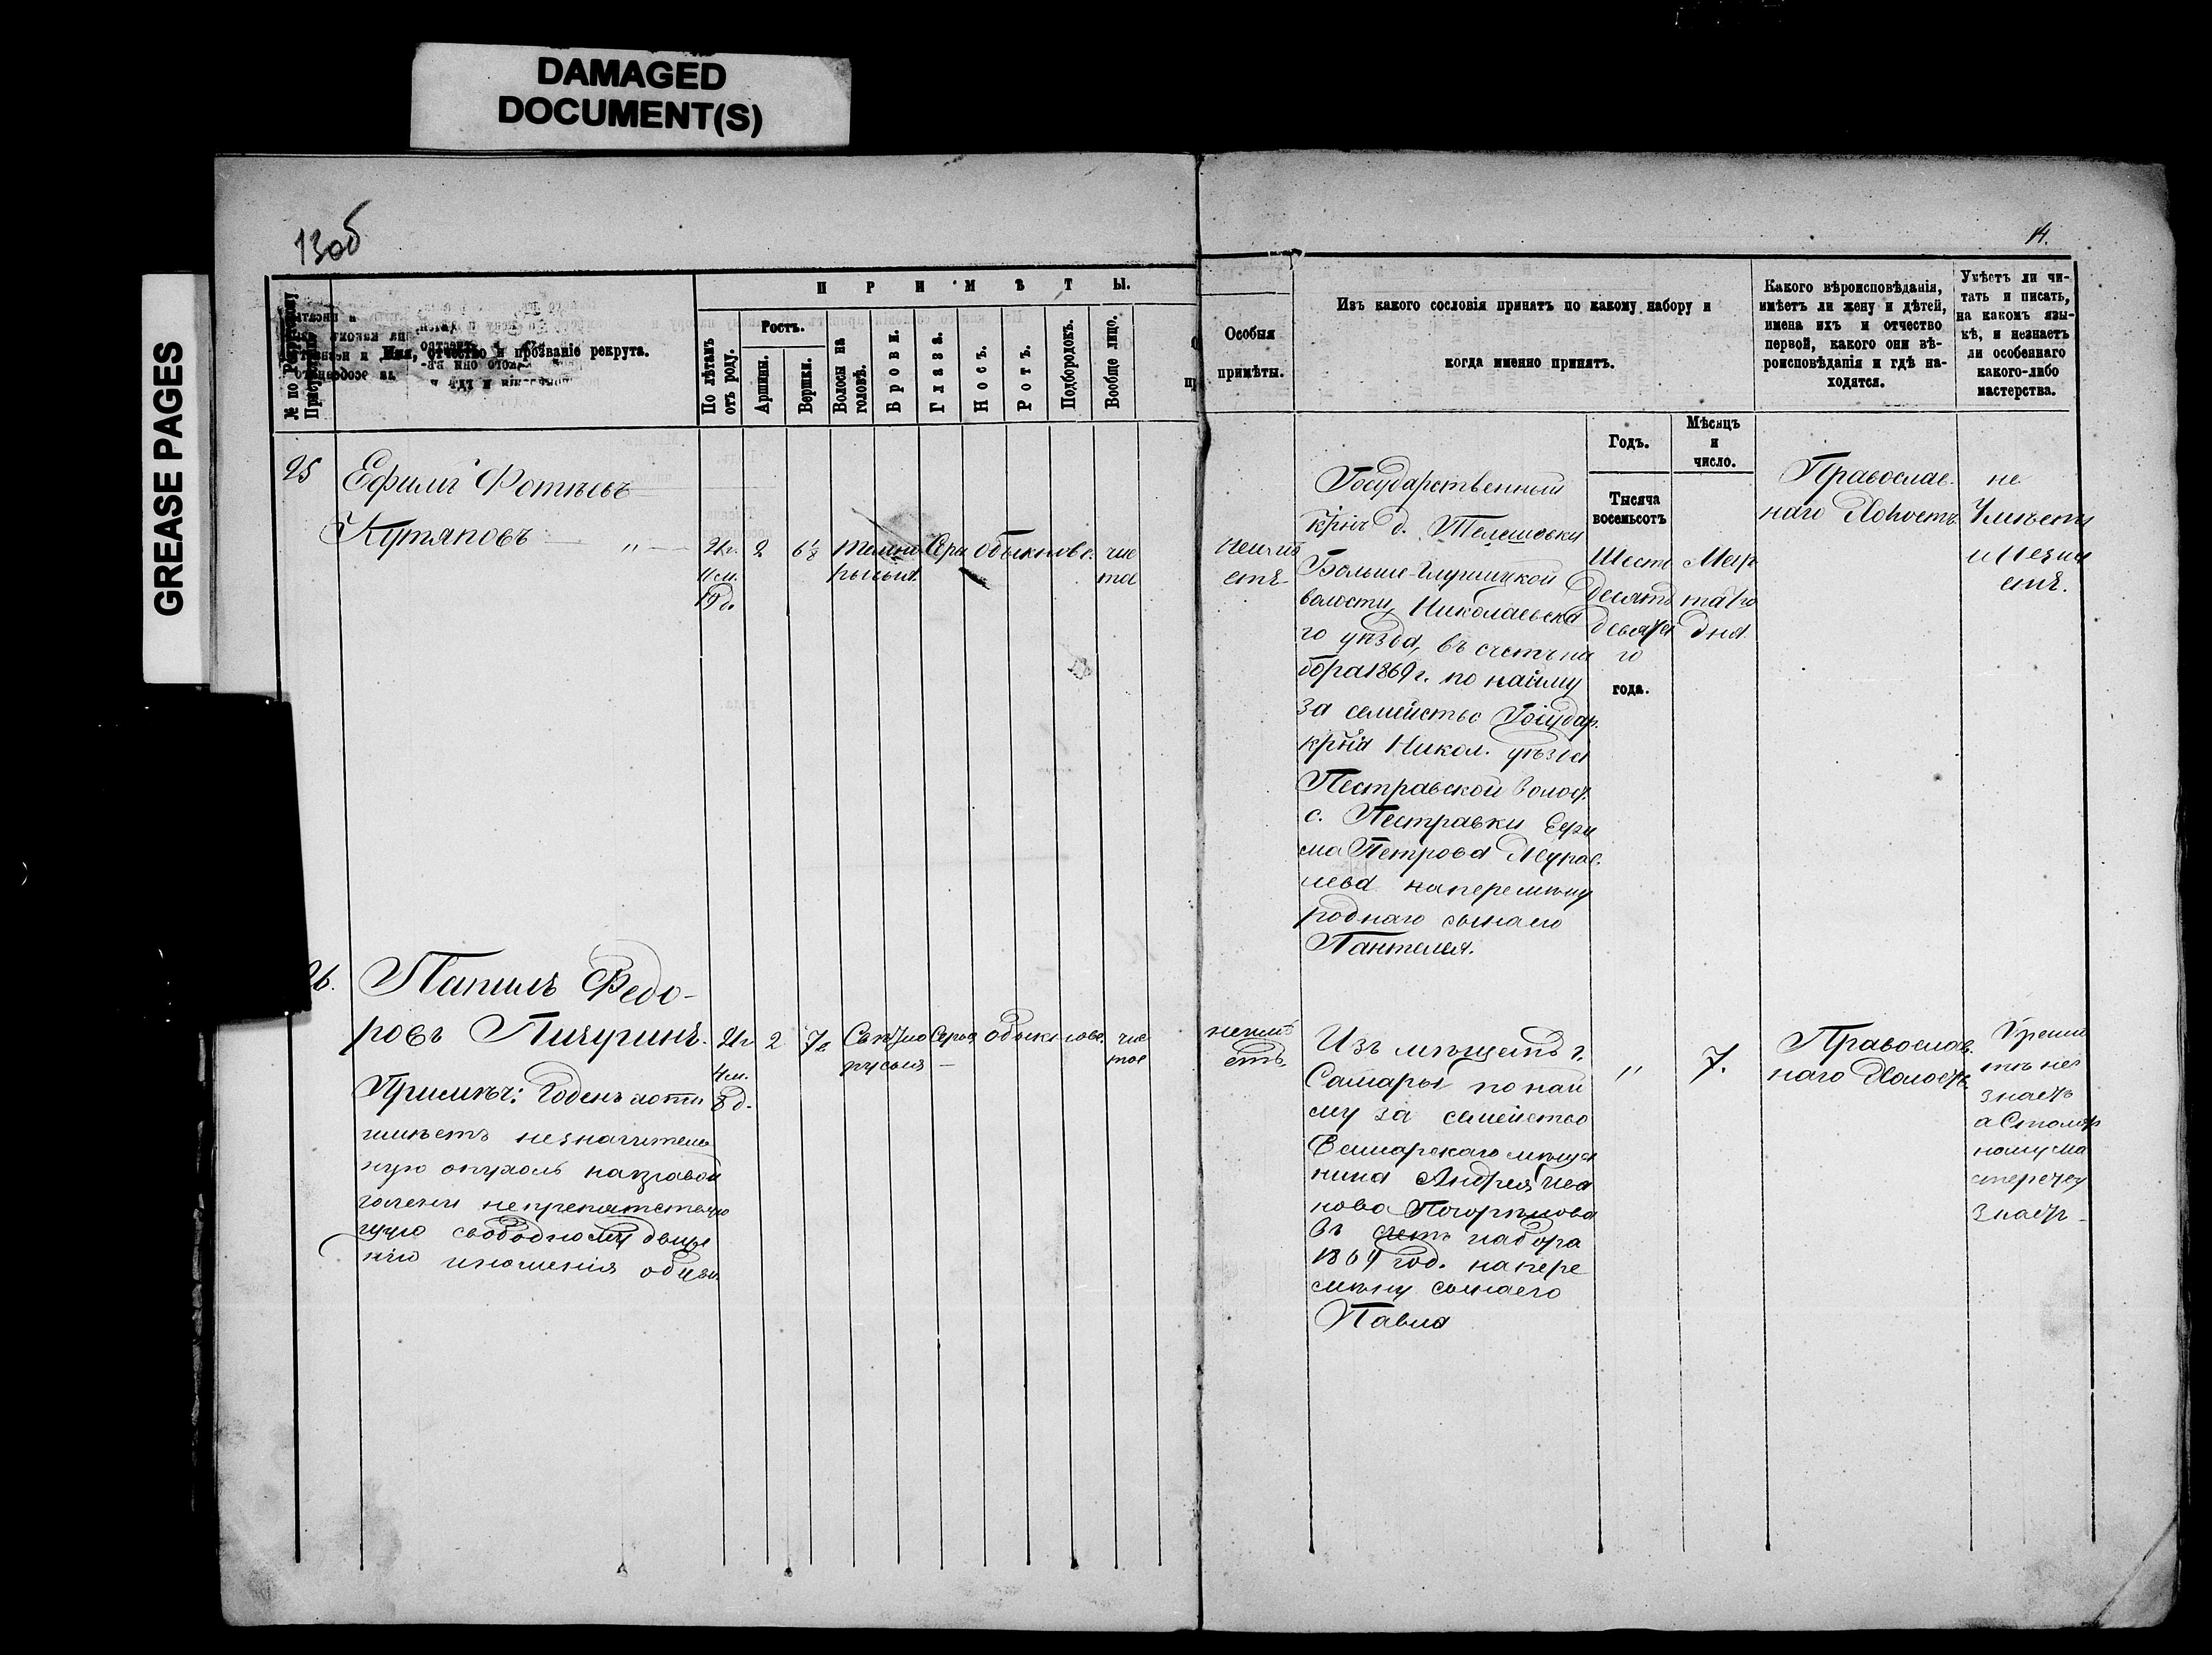 DAMAGED
DOCUMENT(S)
GREASE PAGES
13об
14.
№ по Рекрутскому
Имя, отчество и прозваніе рекрута.
П Р И М Ѣ Т Ы.
По лѣтамъ
отъ роду.
Ростъ.
Аршины.
Вершки.
Волосы на
головѣ.
Брови.
Глаза.
Носъ.
Ротъ.
Подбородокъ.
Вообще лицо.
Особыя
примѣты.
Изъ какого сословія принятъ по какому набору и
когда именно принятъ.
Годъ.
Мѣсяцъ
и
число.
Какого вѣроисповѣданія,
имѣетъ ли жену и дѣтей,
имена ихъ и отчество
первой, какого они вѣ-
роисповѣданія и гдѣ на-
ходятся.
Умѣетъ ли чи-
тать и писать,
на какомъ язы-
кѣ, и незнаетъ
ли особеннаго
какого-либо
мастерства.
25
Ефимъ Фотѣевъ
Кутяповъ — „ —
21г.
11 м.
19 д.
2
6 1/8
темно
русые
Сѣры
обыкнове.
чис
тое
неимѣ
етъ
Государственный
крнъ д. Телешовки
Больше-Глушицкой
волости, Николаевска
го уѣзда, въ счетъ на
бора 1869 г. по найму
за семейство Государ.
крна Никол. уѣзда
Пестравской волос.
с. Пестравки Ефи
ма Петрова Мурав.
лева наперемѣну
роднаго сына его
Пантелея.
Тысяча
восемьсотъ
Шесть
десятъ
девята
го
года.
Мар
та 1го
дня
Православ.
наго Холостъ.
не
Умѣетъ
и незна
етъ.
26.
Папилъ Федо-
ровъ Пичуринъ.
21г
4 м.
8 д.
2
7
Свѣтло
русыя —
Серые
обыкнове.
чис
тое
Примѣч: Годенъ хотя
имѣетъ незначитель
ную опухоль направой
голени непрепятству
ющую свободному движе
нію иношенія обуви
неимѣ
етъ
Изъ мѣщанъ г.
Самары по най
му за семейство
Самарскаго мѣща
нина Андрея Ива
нова Погорѣлова
въ счетъ набора
1869 год. напере
мѣну сына его
Павла
„
7.
Православ.
наго Холостъ.
Грамо
тѣ не
знаетъ
а Столяр
ному ма
стерству
знаетъ